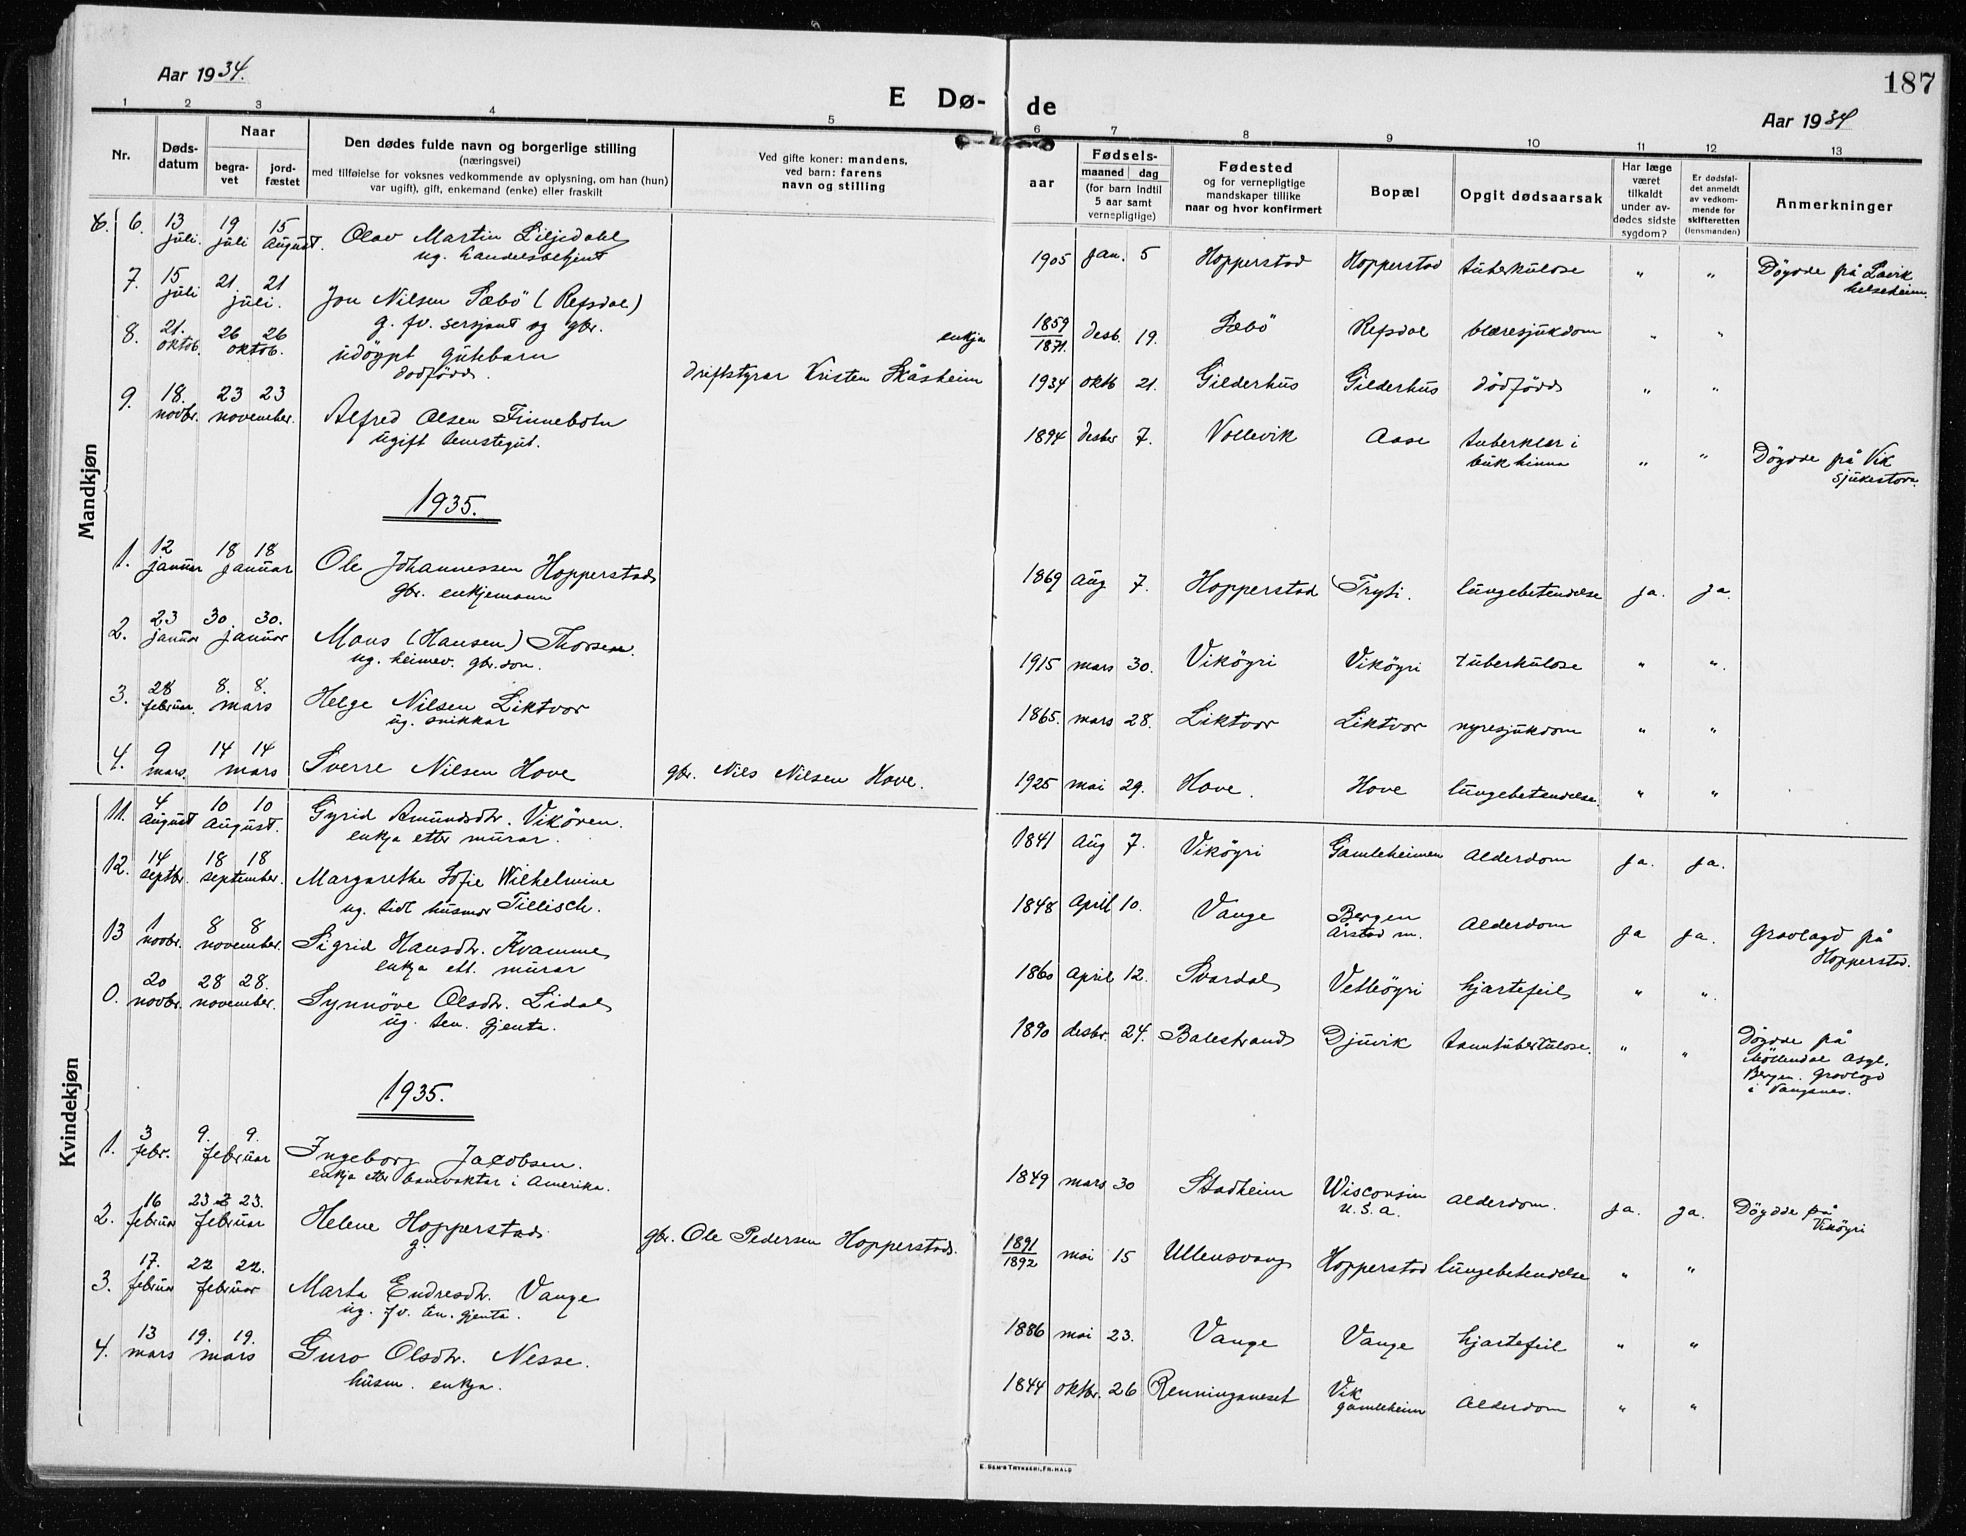 Aar 1934.
187
E Dø- de
Aar 1934
1 2 3 4 5 6 7 8 9 10 11 12 13
Nr.
Døds-
datum
Naar
begra-
vet
jord-
fæstet
Den dødes fulde navn og borgerlige stilling
(næringsvei)
med tilføielse for voksnes vedkommende av oplysning, om han (hun)
var ugift), gift, enkemand (enke) eller fraskilt
Ved gifte koner: mandens,
ved barn: farens
navn og stilling
aar
Fødsels-
maaned dag
(for barn indtil
5 aar samt
vernepligtige)
Fødested
og for vernepligtige
mandskaper tillike
naar og hvor konfirmert
Bopæl
Opgit dødsaarsak
Har læge
været
tilkaldt
under av-
dødes sidste
sygdom?
Er dødsfal-
det anmeldt
av vedkom-
mende for
skifteretten
(lensmanden)
Anmerkninger
Mandkjøn
6. 13 juli. 19 juli 15 August. Olav Martin Liljedahl
ug. handelsbetjent
1905 jan. 5 Hopperstad Hopperstad tuberkulose " " Døydde på Lavik
helseheim.
7. 15 juli 21. 21 juli. Jon Nilsen Sæbö (Refsdal)
g. fv. sersjant og gbr.
1859/1871. desb. 19. Sæbö Refsdal blæresjukdom " "
8. 21. oktob. 26 26 oktob. udöypt gutebarn
dødfödd.
enkja
driftstyrar Kristen Skåsheim
1934 oktb 21. Gilderhus Gilderhus dödfödd " "
9. 18. novbr. 23 23 november. Alfred Olsen Finnebotn
ugift tenestegut.
1894 desbr 7. Vollevik Aase tuberklar i
bukhinna " " Döydde på Vik
sjukestova.
1935.
1. 12 januar 18 18 januar Ole Johannessen Hopperstad
gbr. enkjemann
1869 Aug 7. Hopperstad Tryti. lungebetendelse ja. ja.
2. 23 januar 30 30. januar Mons (Hansen) Thorsen.
ug. heimev. gbr. son.
1915 mars 30. Viköyri Viköyri tuberkulose " "
3. 28 februar. 8. 8. mars Helge Nilsen Liktvor
ug. snikkar
1865. mars 28. Liktvor Liktvor nyresjukdom " "
4. 9 mars. 14 14 mars Sverre Nilsen Hove gbr. Nils Nilsen Hove.
1925 mai 29. Hove. Hove lungebetendelse. " "
Kvindekjøn
11. 4 August 10 10 August. Gyrid Amundsdtr. Vikören.
enkja etter murar.
1841 Aug 7. Viköyri Gamleheimen Alderdom ja. ja.
12. 14 septbr. 18 18 september. Margarethe Sofie Wilhelmine
ug. tidl husmor Tillisch.
1848 April 10. Vange Bergen
Årstad m. Alderdom ja ja. Gravlagd på
Hopperstad.
13 1 novbr. 8 8 november. Sigrid Hansdtr. Kvamme
enkja ett. murar
1860 April 12. Svardal Vetleöyri hjartefeil " "
0. 20 novbr. 28 28. november. Synnöve Olsdtr. Lidal
ug. ten. gjenta.
1890 desbr. 24. Balestrand Djuvik tarmtuberkulose. " " Döydde på
Möllendal Asyl.
Bergen. Gravlagd
i Vangsnes.
1935.
1. 3 febr. 9. 9. februar Ingeborg Jacobsen.
enkja etter banevaktar i Amerika.
1849 mars 30 Stadheim Wisconsin
U.S.A. Alderdom. ja. ja. Döydde på
Viköyri
2. 16 februar 23 23. februar Helene Hopperstad
g. gbr. Ole Pedersen Hopperstad.
1891/1892 mai 15 Ullensvang Hopperstad lungebetendelse " "
3. 17. februar 22 22. februar Marta Endresdtr. Vange
ug. fv. ten. gjenta.
1886 mai 23. Vange Vange hjartefeil " "
4. 13 mars 19. 19. mars Guro Olsdtr. Nesse.
husm. enkja.
1844 oktbr. 26 Renninganeset Vik
gamleheim Alderdom " "
E. SEM'S TRYKKERI, FR.HALD